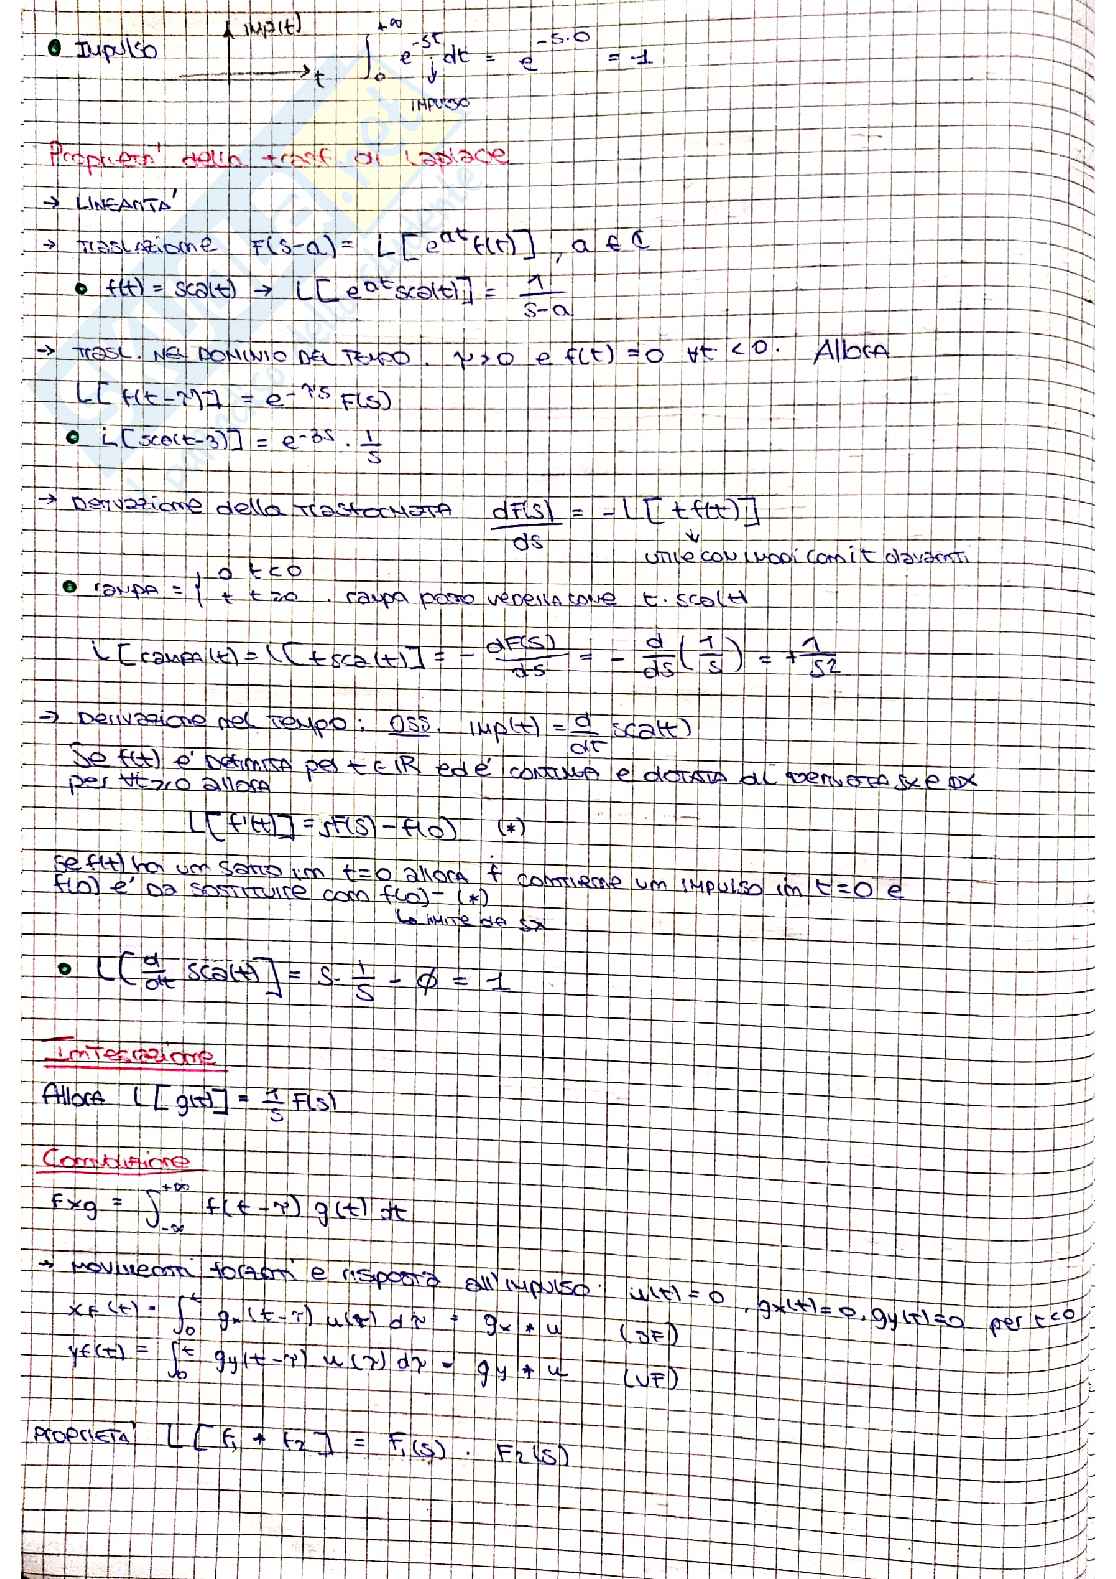 • Impulso imp(t) t ∫₀^{+∞} e^{-st} dt = e^{-s·0} = 1
↓ IMPULSO
Proprietà della trasf. di Laplace
→ LINEARITA'
→ Traslazione F(s-a) = L[e^{at} f(t)], a ∈ ℂ
• f(t) = sca(t) → L[e^{at} sca(t)] = 1/(s-a)
→ TRASL. NEL DOMINIO DEL TEMPO. τ>0 e f(t) = 0 ∀t < 0. Allora
L[f(t-τ)] = e^{-τs} F(s)
• L[sca(t-3)] = e^{-3s} · 1/s
→ Derivazione della Trasformata dF(s)/ds = -L[t f(t)]
↓
utile con modi con t davanti
• rampa = { 0 t<0
t t≥0 . rampa posso vederla come t·sca(t)
L[rampa(t)] = L[t sca(t)] = - dF(s)/ds = - d/ds (1/s) = + 1/s²
→ Derivazione nel Tempo: OSS. imp(t) = d/dt sca(t)
Se f(t) e' definita per t ∈ ℝ ed e' continua e dotata di derivata sx e dx
per ∀t≥0 allora
L[f'(t)] = sF(s) - f(0) (*)
Se f(t) ha un salto in t=0 allora f contiene un impulso in t=0 e
f(0) e' da sostituire con f(0)⁻ (*)
↳ limite da sx
• L[d/dt sca(t)] = s · 1/s - ∅ = 1
Integrazione
Allora L[g(t)] = 1/s F(s)
Convoluzione
f×g = ∫_{-∞}^{+∞} f(t-τ) g(t) dt
→ Movimenti forzati e risposta all'impulso. u(t) = 0, gx(t) = 0, gy(t) = 0 per t<0
xF(t) = ∫₀ᵗ gx(t-τ) u(τ) dτ = gx * u (XF)
yF(t) = ∫₀ᵗ gy(t-τ) u(τ) dτ = gy * u (YF)
PROPRIETA' L[F₁ * F₂] = F₁(s) · F₂(s)